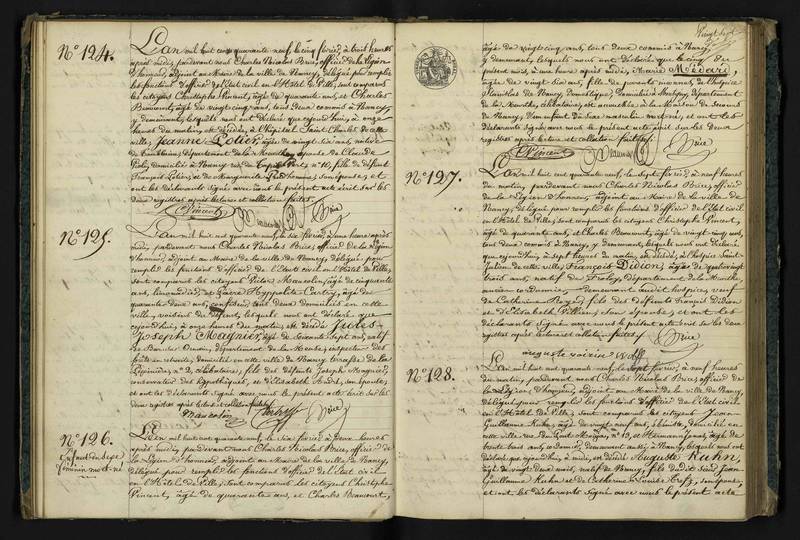 N° 124.
L'an mil huit cent quarante neuf, le cinq février, à trois heures
après midi, pardevant nous Charles Nicolas Brice, officier de la Légion
d'honneur, adjoint au Maire de la ville de Nancy, délégué pour remplir
les fonctions d'officier de l'État civil en l'Hôtel de Ville, sont comparus
les citoyens Christophe Vincent, âgé de quarante ans, et Charles
Beaucourt, âgé de vingt cinq ans, tous deux commis à Nancy,
y demeurant, lesquels nous ont déclaré que cejourd'hui, à onze
heures du matin, est décédée, à l'hôpital Saint Charles de cette
ville, Jeanne Potier, âgée de ans, native
de département de la Meurthe, épouse de Claude
domicilié à Nancy rue N° 10, fille de défunt
François Potier, et de Marguerite son épouse, et
ont les déclarants signé avec nous le présent acte écrit sur les
deux registres après lecture et collation faites.
Vincent Brice
N° 125.
L'an mil huit cent quarante neuf, le six février, à une heure après
midi, pardevant nous Charles Nicolas Brice, officier de la Légion
d'honneur, adjoint au Maire de la ville de Nancy, délégué pour
remplir les fonctions d'officier de l'État civil en l'Hôtel de Ville,
sont comparus les citoyens Victor Maucolin, âgé de cinquante
ans, et Hyppolite Cartry, âgé de
quarante deux ans, tous deux domiciliés en cette
ville, voisins du défunt, lesquels nous ont déclaré que
cejourd'hui, à onze heures du matin, est décédé Jules
Joseph Magnier, âgé de soixante sept ans, natif
de département de la Meuse, inspecteur des
forêts en retraite, domicilié en cette ville de Nancy terrasse de la
Pépinière, N° 2, célibataire, fils des défunts Joseph Magnier,
conservateur des hypothèques, et d'Elisabeth André, son épouse,
et ont les déclarants signé avec nous le présent acte écrit sur les
deux registres après lecture et collation faites.
Maucolin Cartry Brice
N° 126.
Enfant du sexe
féminin mort-né
L'an mil huit cent quarante neuf, le six février à deux heures
après midi, pardevant nous Charles Nicolas Brice, officier de
la Légion d'honneur, adjoint au Maire de la ville de Nancy,
délégué pour remplir les fonctions d'officier de l'État civil
en l'Hôtel de Ville, sont comparus les citoyens Christophe
Vincent, âgé de quarante ans, et Charles Beaucourt,
Vingt sept
âgé de vingt cinq ans, tous deux commis à Nancy,
y demeurant, lesquels nous ont déclaré que le cinq du
présent mois, à une heure après midi, Marie Médard,
âgée de vingt six ans, fille de parents inconnus, de l'hospice
Stanislas de Nancy, domestique, domiciliée à département
de la Meurthe, célibataire, est accouchée à la Maison de Secours
de Nancy, d'un enfant du sexe masculin mort-né, et ont les
déclarants signé avec nous le présent acte écrit sur les deux
registres après lecture et collation faites.
Vincent Brice
N° 127.
L'an mil huit cent quarante neuf, le sept février, à neuf heures
du matin, pardevant nous Charles Nicolas Brice, officier
de la Légion d'honneur, adjoint au Maire de la ville de
Nancy, délégué pour remplir les fonctions d'officier de l'État civil
en l'Hôtel de Ville, sont comparus les citoyens Christophe Vincent,
âgé de quarante ans, et Charles Beaucourt, âgé de vingt cinq ans,
tous deux commis à Nancy, y demeurant, lesquels nous ont déclaré
que cejourd'hui, à sept heures du matin, est décédé, à l'hospice Saint
Julien de cette ville, François Didion, âgé de quatre vingt
trois ans, natif de département de la Meurthe,
ancien demeurant audit hospice, veuf
de Catherine fils des défunts François Didion
et d'Elisabeth son épouse, et ont les
déclarants signé avec nous le présent acte écrit sur les deux
registres après lecture et collation faites.
Brice
N° 128.
L'an mil huit cent quarante neuf, le sept février, à neuf heures
du matin, pardevant nous Charles Nicolas Brice, officier de
la Légion d'honneur, adjoint au Maire de la ville de Nancy,
délégué pour remplir les fonctions d'officier de l'État civil
en l'Hôtel de Ville, sont comparus les citoyens Jean
Guillaume Kuhn, âgé de vingt neuf ans, domicilié en
cette ville N° 19, et âgé de
trente ans, à Nancy, lesquels nous ont
déclaré que est décédé Auguste Kuhn,
âgé de vingt deux mois, natif de Nancy, fils dudit sieur Jean
Guillaume Kuhn et de Catherine Louise son épouse,
et ont les déclarants signé avec nous le présent acte